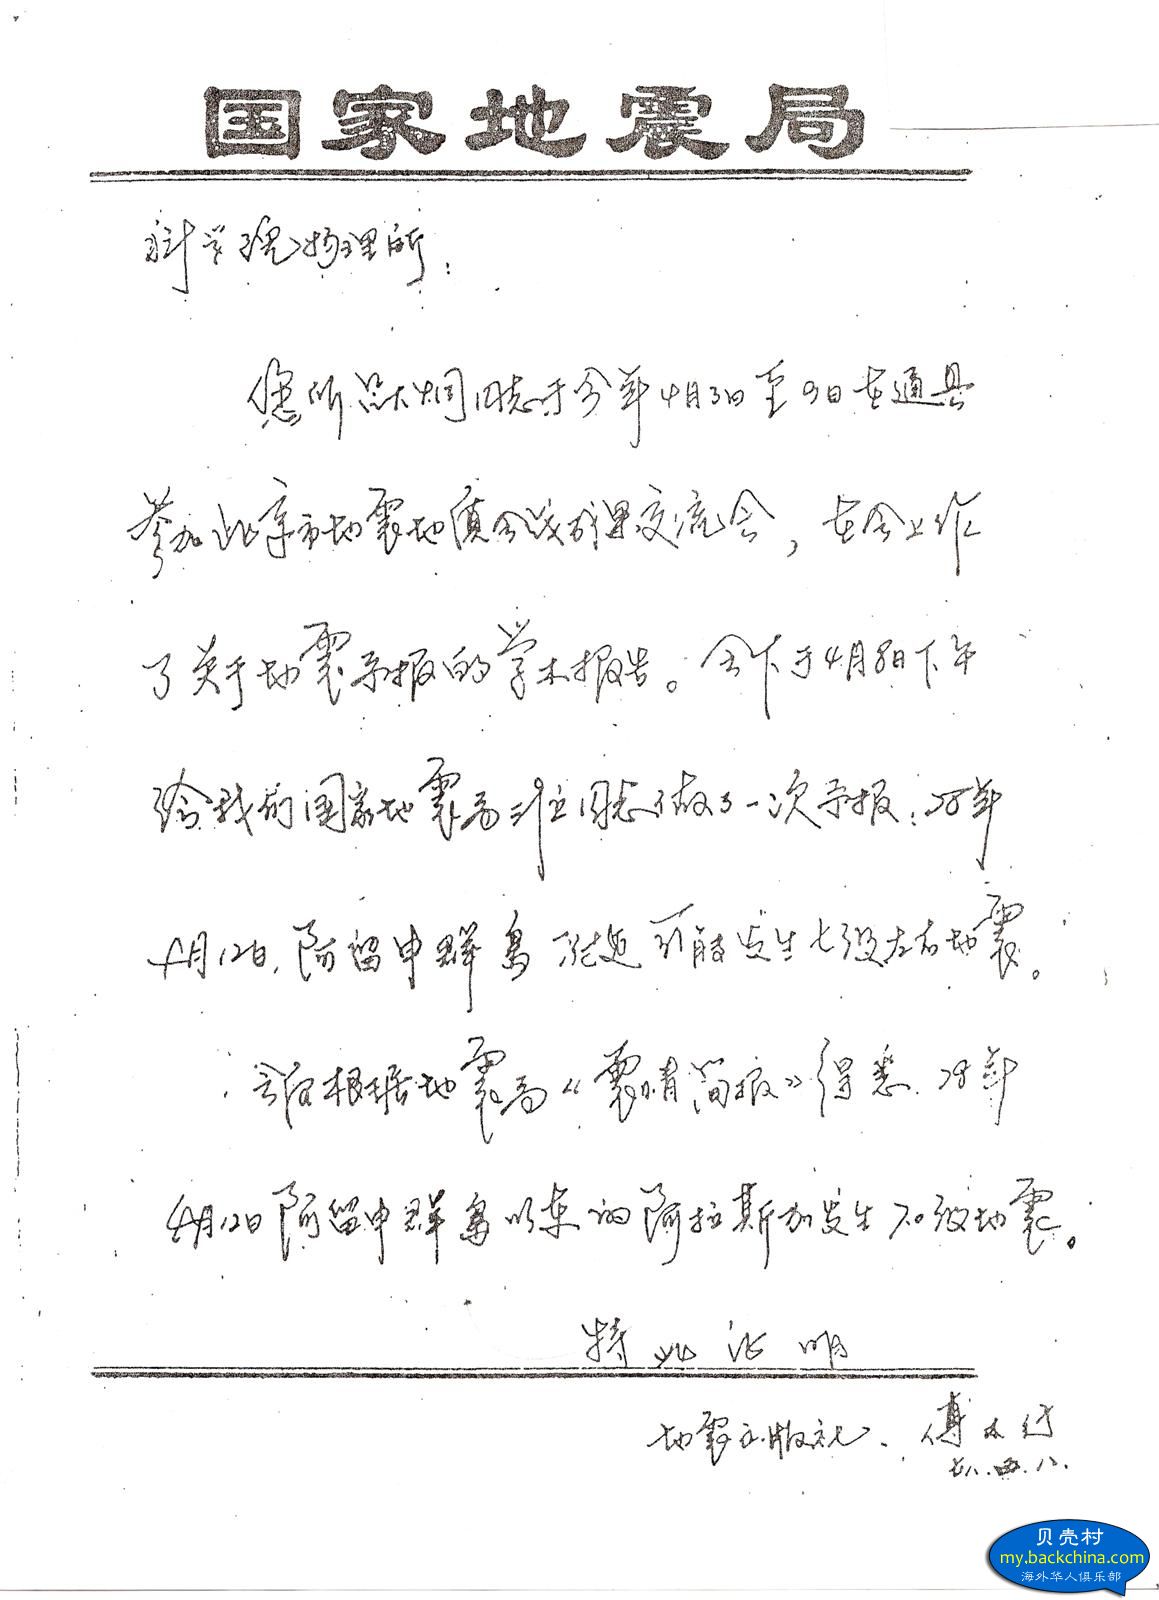 国家地震局
科学院物理所：
您所吴大炯同志于今年4月3日至9日在通县
参加北京市地震地质会战成果交流会，在会上作
了关于地震予报的学术报告。会下于4月8日下午
给我们国家地震局 同志做了一次予报：78年
4月12日，阿留申群岛附近可能发生七级左右地震。
会后根据地震局《震情简报》得悉，78年
4月12日阿留申群岛以东的阿拉斯加发生7.0级地震。
特此证明
地震出版社、傅
七八.四.
贝壳村
my.backchina.com
海外华人俱乐部